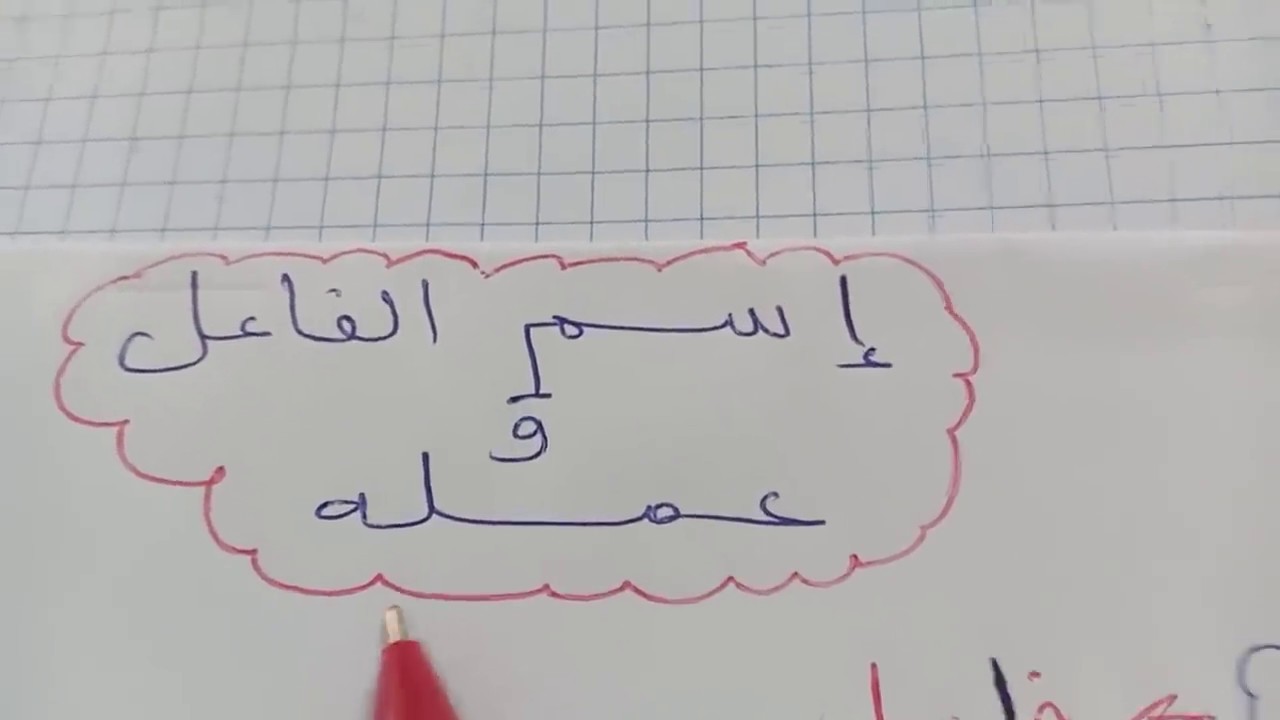 إسم الفاعل
و
عمله